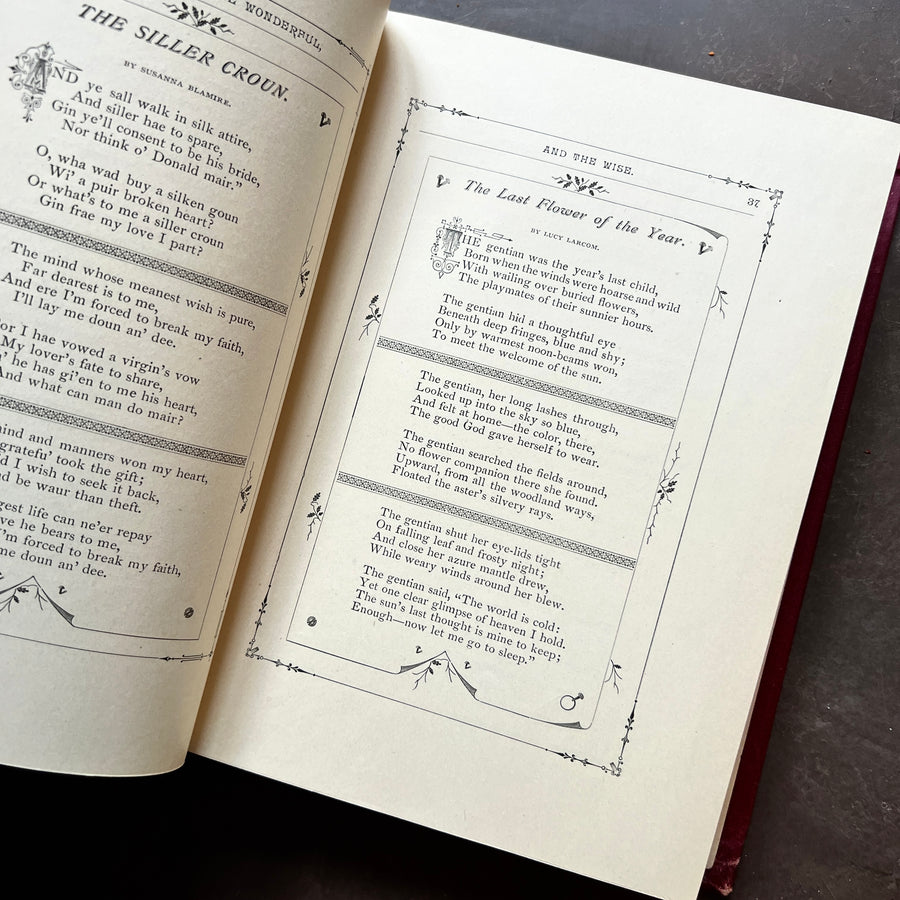 WONDERFUL,
THE SILLER CROUN.
BY SUSANNA BLAMIRE.
AND ye sall walk in silk attire,
And siller hae to spare,
Gin ye'll consent to be his bride,
Nor think o' Donald mair."
O, wha wad buy a silken goun
Wi' a puir broken heart?
Or what's to me a siller croun
Gin frae my love I part?
The mind whose meanest wish is pure,
Far dearest is to me,
And ere I'm forced to break my faith,
I'll lay me doun an' dee.
For I hae vowed a virgin's vow
My lover's fate to share,
he has gi'en to me his heart,
And what can man do mair?
mind and manners won my heart,
gratefu' took the gift;
I wish to seek it back,
be waur than theft.
life can ne'er repay
he bears to me,
I'm forced to break my faith,
me doun an' dee.
AND THE WISE.
37
The Last Flower of the Year.
BY LUCY LARCOM.
THE gentian was the year's last child,
Born when the winds were hoarse and wild
With wailing over buried flowers,
The playmates of their sunnier hours.
The gentian hid a thoughtful eye
Beneath deep fringes, blue and shy;
Only by warmest noon-beams won,
To meet the welcome of the sun.
The gentian, her long lashes through,
Looked up into the sky so blue,
And felt at home—the color, there,
The good God gave herself to wear.
The gentian searched the fields around,
No flower companion there she found.
Upward, from all the woodland ways,
Floated the aster's silvery rays.
The gentian shut her eye-lids tight
On falling leaf and frosty night;
And close her azure mantle drew,
While weary winds around her blew.
The gentian said, "The world is cold:
Yet one clear glimpse of heaven I hold.
The sun's last thought is mine to keep;
Enough—now let me go to sleep."